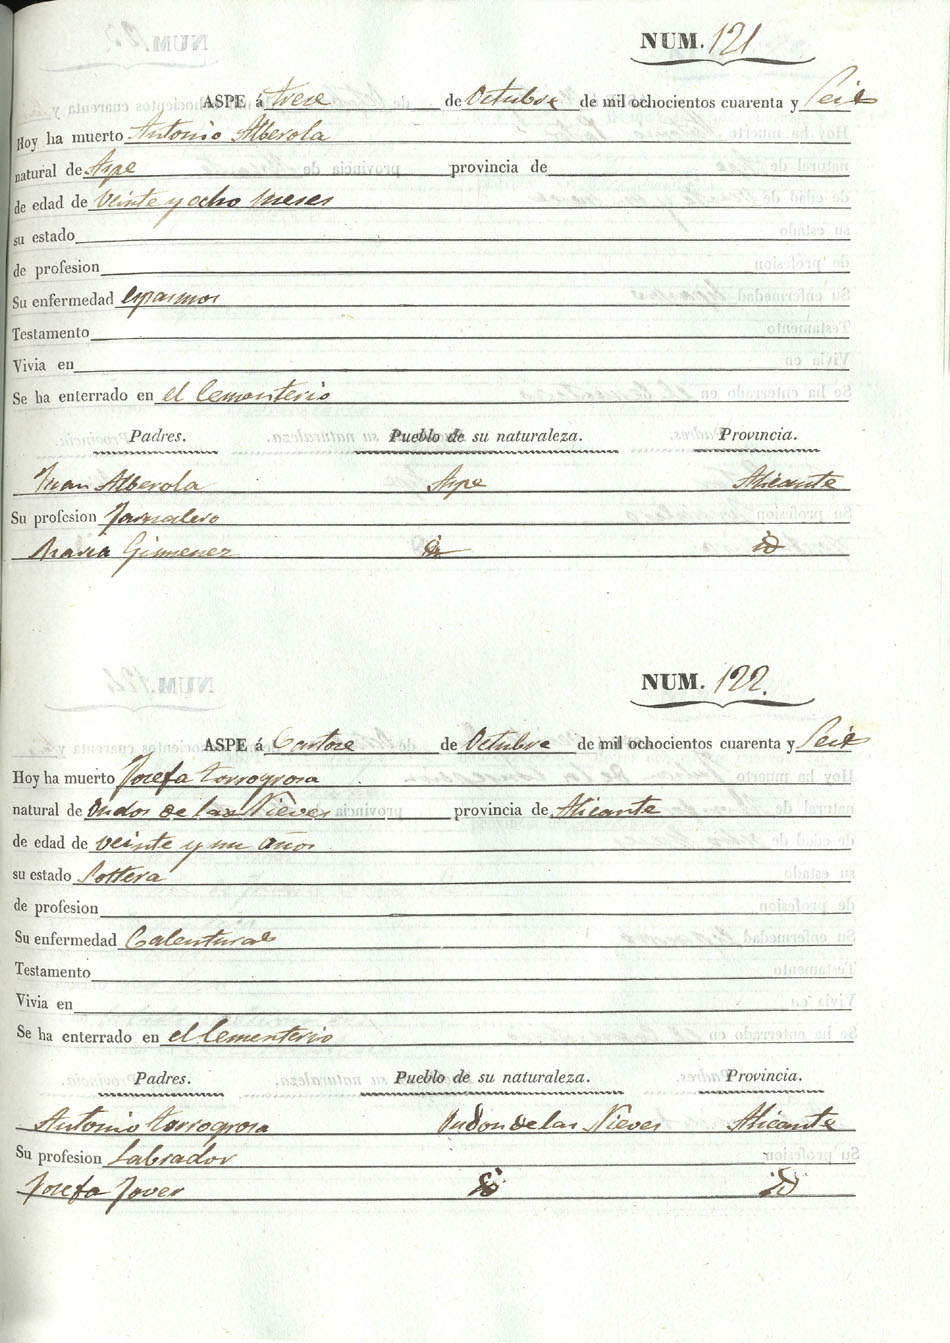 NUM. 121
ASPE á trece de Octubre de mil ochocientos cuarenta y Seis
Hoy ha muerto Antonio Alberola
natural de Aspe provincia de
de edad de veinte y ocho meses
su estado
de profesion
Su enfermedad espasmos
Testamento
Vivia en
Se ha enterrado en el Cementerio
Padres. Pueblo de su naturaleza. Provincia.
Juan Alberola Aspe Alicante
Su profesion Jornalero
Maria Gimenez id id
NUM. 122.
ASPE á Catorse de Octubre de mil ochocientos cuarenta y Seis
Hoy ha muerto Josefa torregrosa
natural de ondon de las Nieves provincia de Alicante
de edad de veinte y un años
su estado Soltera
de profesion
Su enfermedad Calenturas
Testamento
Vivia en
Se ha enterrado en el Cementerio
Padres. Pueblo de su naturaleza. Provincia.
Antonio torregrosa ondon de las Nieves Alicante
Su profesion Labrador
Josefa Jover id id